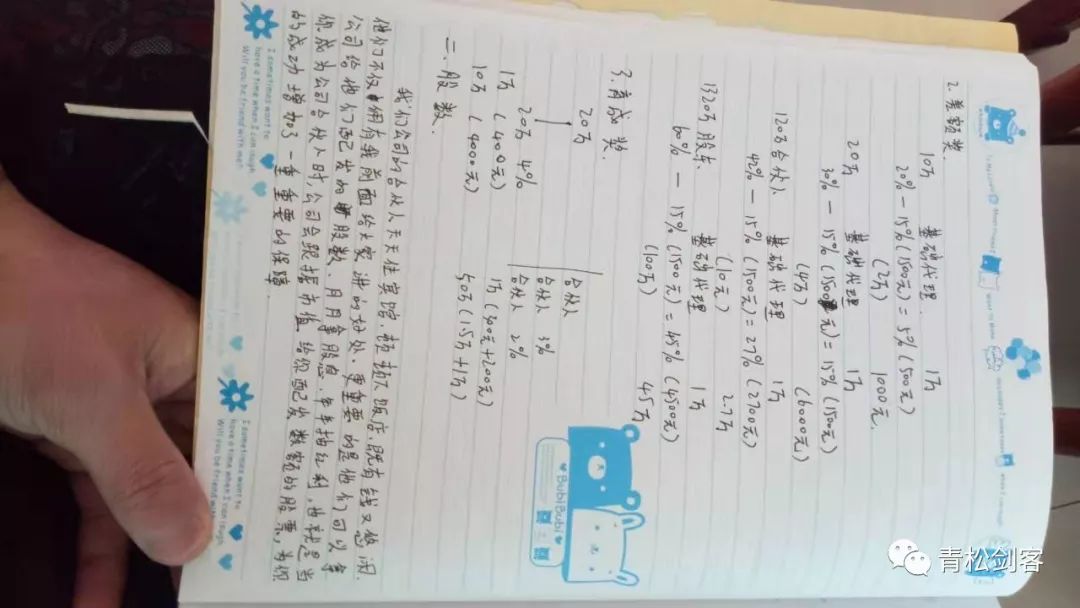 2. 差额奖.
10万 基础代理 1万
20% — 15%(1500元) = 5%(500元)
(2万) 1000元.
20万 基础代理 1万
30% — 15%(1500元) = 15%(1500元)
(4万) (6000元)
120万合伙人 基础代理 1万
42% — 15%(1500元) = 27%(2700元)
(10元) 2.7万
1320万股东 基础代理 1万
60% — 15%(1500元) = 45%(4500元)
(100万) 45万
3. 育成奖.
20万 合伙人
合伙人 3%
20万 4% 合伙人 2%
1万 (400元) 1万(300元+200元)
10万 (4000元) 50万(1.5万+1万)
二. 股数.
我们公司的合伙人天天住宾馆.顿顿下饭店.既有钱又悠闲.
他们不仅拥有我前面给大家讲的好处.更重要的是他们可以拿
公司给他们配发的股数.月月拿股息.年年抽红利,也就是当
你成为公司合伙人时,公司会跟据市值给你配发数额的股票,为你
的成功增加了一重重要的保障.
BubiBubi
I sometimes want to
have a time when I can laugh
Will you be friend with me?
I sometimes want to
have a time when I can laugh
Will you be friend with
青松剑客